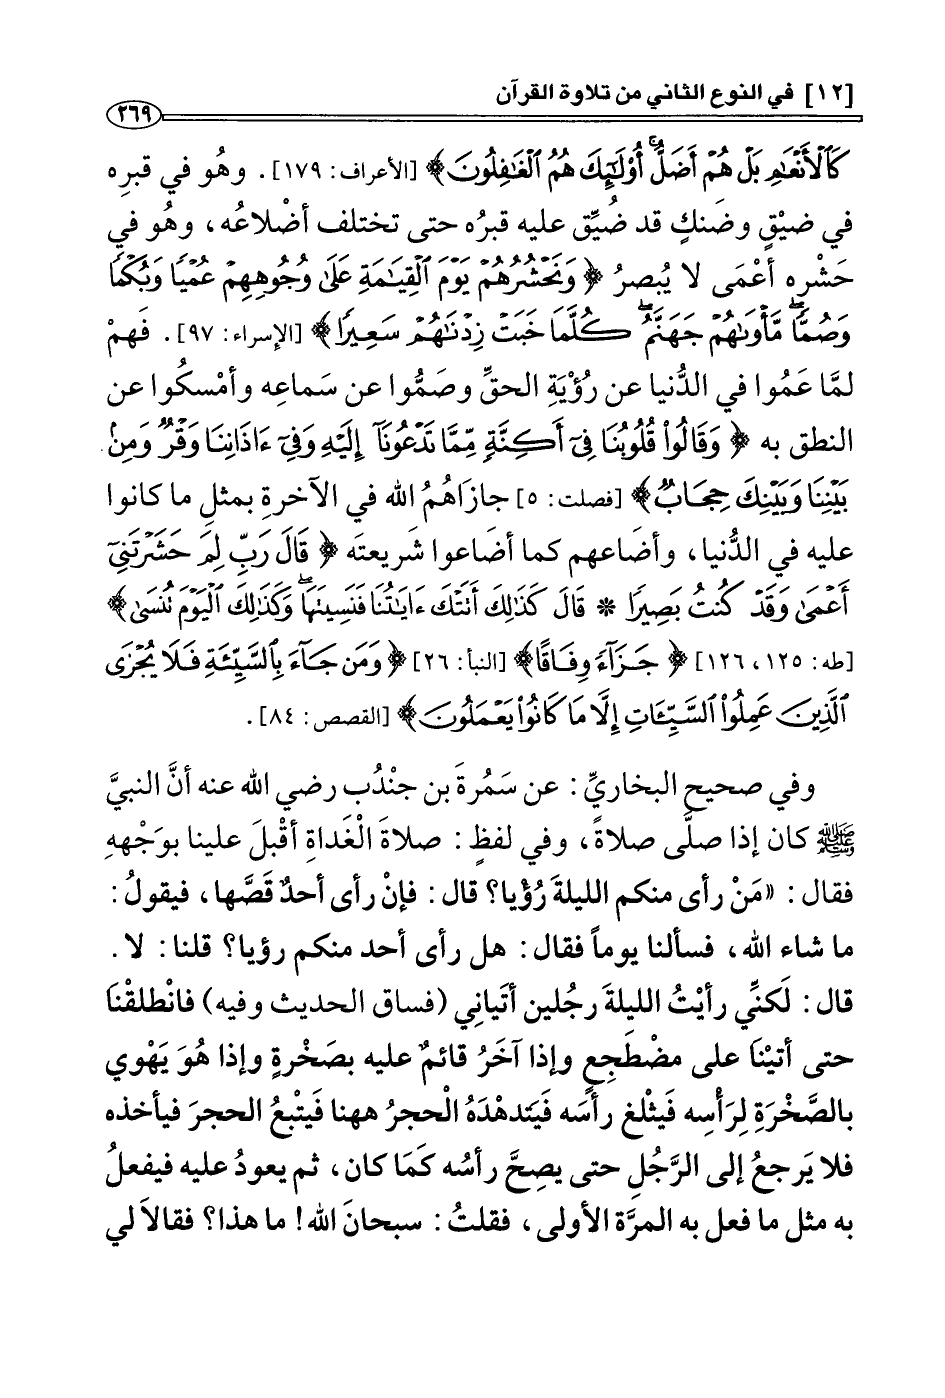 [١٢] في النوع الثاني من تلاوة القرآن
٢٦٩
كَٱلۡأَنۡعَٰمِ بَلۡ هُمۡ أَضَلُّۚ أُوْلَٰٓئِكَ هُمُ ٱلۡغَٰفِلُونَ﴾ [الأعراف: ١٧٩]. وهُو في قبرِه
في ضيْقٍ وضَنكٍ قد ضُيِّق عليه قبرُه حتى تختلف أضْلاعُه، وهُو في
حَشْرِه أعْمَى لا يُبصرُ ﴿وَنَحۡشُرُهُمۡ يَوۡمَ ٱلۡقِيَٰمَةِ عَلَىٰ وُجُوهِهِمۡ عُمۡيٗا وَبُكۡمٗا
وَصُمّٗاۖ مَّأۡوَىٰهُمۡ جَهَنَّمُۖ كُلَّمَا خَبَتۡ زِدۡنَٰهُمۡ سَعِيرٗا﴾ [الإسراء: ٩٧]. فَهمْ
لمَّا عَمُوا في الدُّنيا عن رُؤْيَةِ الحقِّ وصَمُّوا عن سَماعِه وأمْسكُوا عن
النطق به ﴿وَقَالُواْ قُلُوبُنَا فِيٓ أَكِنَّةٖ مِّمَّا تَدۡعُونَآ إِلَيۡهِ وَفِيٓ ءَاذَانِنَا وَقۡرٞ وَمِنۢ
بَيۡنِنَا وَبَيۡنِكَ حِجَابٞ﴾ [فصلت: ٥] جازَاهُمُ الله في الآخرةِ بمثلِ ما كانوا
عليه في الدُّنيا، وأضاعهم كما أضَاعوا شريعتَه ﴿قَالَ رَبِّ لِمَ حَشَرۡتَنِيٓ
أَعۡمَىٰ وَقَدۡ كُنتُ بَصِيرٗا * قَالَ كَذَٰلِكَ أَتَتۡكَ ءَايَٰتُنَا فَنَسِيتَهَاۖ وَكَذَٰلِكَ ٱلۡيَوۡمَ تُنسَىٰ﴾
[طه: ١٢٥، ١٢٦] ﴿جَزَآءٗ وِفَاقًا﴾ [النبأ: ٢٦] ﴿وَمَن جَآءَ بِٱلسَّيِّئَةِ فَلَا يُجۡزَى
ٱلَّذِينَ عَمِلُواْ ٱلسَّيِّـَٔاتِ إِلَّا مَا كَانُواْ يَعۡمَلُونَ﴾ [القصص: ٨٤].
وفي صحيح البخاريِّ: عن سَمُرةَ بن جنْدُب رضي الله عنه أنَّ النبيَّ
ﷺ كان إذا صلَّى صلاةً، وفي لفظٍ: صلاةَ الْغَداةِ أقْبلَ علينا بوَجْههِ
فقال: «مَنْ رأى منكم الليلةَ رُؤْيا؟ قال: فإنْ رأى أحدٌ قَصَّها، فيقولُ:
ما شاء الله، فسألنا يوماً فقال: هل رأى أحد منكم رؤيا؟ قلنا: لا.
قال: لَكنِّي رأيْتُ الليلةَ رجُلين أتَياني (فساق الحديث وفيه) فانْطلقْنَا
حتى أتيْنَا على مضْطَجِعٍ وإذا آخَرُ قائمٌ عليه بصَخْرةٍ وإذا هُوَ يَهْوي
بالصَّخْرَةِ لِرَأسِه فَيثْلغ رأسَه فَيَتدهْدَهُ الْحجرُ ههنا فَيتْبعُ الحجرَ فيأخذه
فلا يَرجعُ إلى الرَّجُلِ حتى يصِحَّ رأسُه كَمَا كان، ثم يعودُ عليه فيفعلُ
به مثل ما فعل به المرَّة الأولى، فقلتُ: سبحانَ الله! ما هذا؟ فقالاَ لي